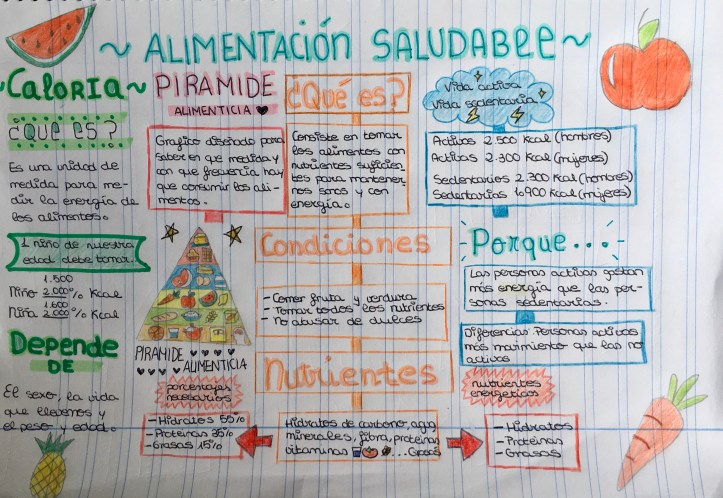 ~ ALIMENTACIÓN SALUDABLE ~
CALORIA~
¿QUÉ ES?
Es una unidad de
medida para me-
dir la energía de
los alimentos.
1 niño de nuestra
edad debe tomar.
1.500
Niño 2.000% Kcal
1.600
Niña 2.000% Kcal
Depende
DE
El sexo, la vida
que llevemos y
el peso y edad.
PIRAMIDE
ALIMENTICIA
Grafico diseñado para
saber en qué medida y
con que frecuencia hay
que consumir los ali-
mentos.
PIRAMIDE
ALIMENTICIA
porcentajes
necesarios
- Hidratos 55%
- Proteinas 35%
- Grasas 15%
¿Qué es?
Consiste en tomar
los alimentos con
nutrientes suficien-
tes para mantener-
nos sanos y con
energía.
Condiciones
- Comer fruta y verdura
- Tomar todos los nutrientes
- No abusar de dulces
Nutrientes
Hidratos de carbono, agua
minerales, fibra, proteinas
vitaminas ... Grasas
Vida activa
Vida sedentaria
Activos 2.500 Kcal (hombres)
Activas 2.300 Kcal (mujeres)
Sedentarios 2.300 Kcal (hombres)
Sedentarias 1.900 Kcal (mujeres)
- Porque... -
Las personas activas gastan
más energía que las per-
sonas sedentarias.
Diferencias: Personas activas
más movimiento que las no
activas
nutrientes
energeticos
- Hidratos
- Proteinas
- Grasas